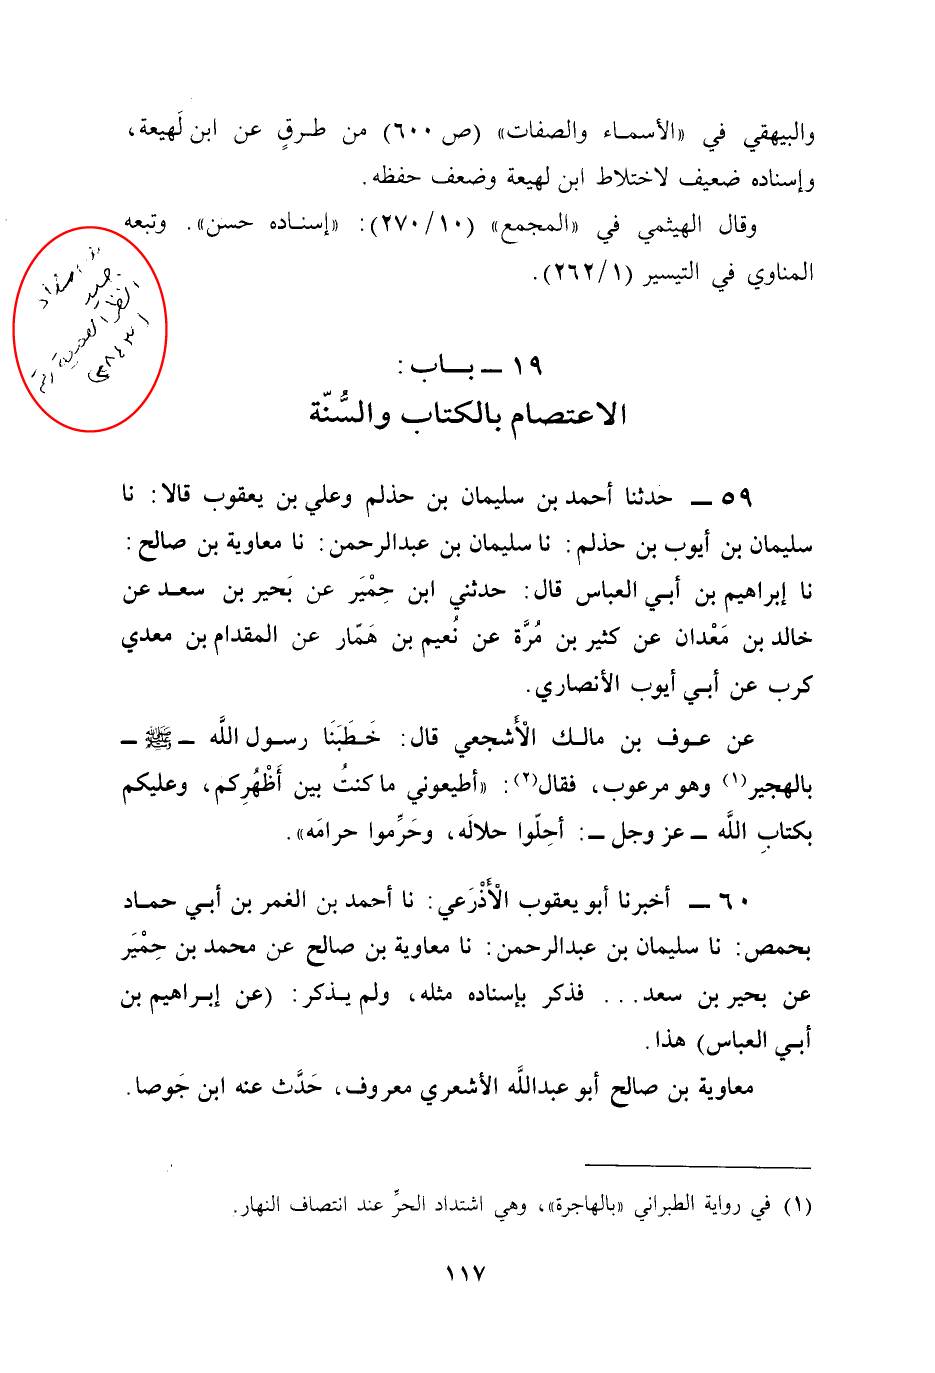 والبيهقي في «الأسماء والصفات» (ص ٦٠٠) من طرقٍ عن ابن لَهيعة،
وإسناده ضعيف لاختلاط ابن لهيعة وضعف حفظه.
وقال الهيثمي في «المجمع» (١٠/ ٢٧٠): «إسناده حسن». وتبعه
المناوي في التيسير (١/ ٢٦٢).
إسناد
جيد
انظر الصحيحة رقم
١٩ ــ بــاب:
الاعتصام بالكتاب والسُّنّة
٥٩ ــ حدثنا أحمد بن سليمان بن حذلم وعلي بن يعقوب قالا: نا
سليمان بن أيوب بن حذلم: نا سليمان بن عبدالرحمن: نا معاوية بن صالح:
نا إبراهيم بن أبي العباس قال: حدثني ابن حِمْيَر عن بَحير بن سعد عن
خالد بن مَعْدان عن كثير بن مُرَّة عن نُعيم بن هَمّار عن المقدام بن معدي
كرب عن أبي أيوب الأنصاري.
عن عوف بن مالك الْأَشجعي قال: خَطَبَنَا رسول اللَّه ــ ﷺ ــ
بالهجير(١) وهو مرعوب، فقال(٢): «أطيعوني ما كنتُ بين أَظْهُرِكم، وعليكم
بكتابِ اللَّه ــ عز وجل ــ: أحِلّوا حلالَه، وحَرِّموا حرامَه».
٦٠ ــ أخبرنا أبو يعقوب الْأَذْرَعي: نا أحمد بن الغمر بن أبي حماد
بحمص: نا سليمان بن عبدالرحمن: نا معاوية بن صالح عن محمد بن حِمْيَر
عن بحير بن سعد... فذكر بإسناده مثله، ولم يذكر: (عن إبراهيم بن
أبي العباس) هذا.
معاوية بن صالح أبو عبداللَّه الأشعري معروف، حَدَّث عنه ابن جَوصا.
(١) في رواية الطبراني «بالهاجرة»، وهي اشتداد الحرِّ عند انتصاف النهار.
١١٧